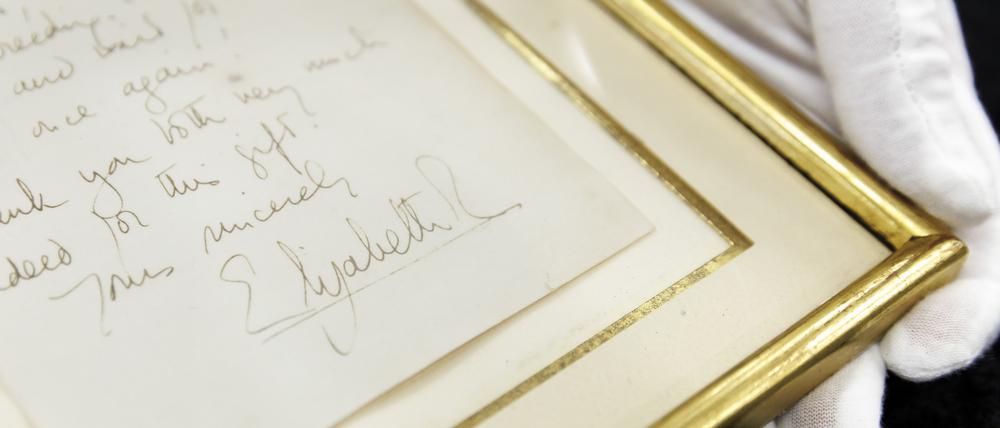 breeding
and
once again
thank you both very much
indeed for this gift.
Yours sincerely
Elizabeth R